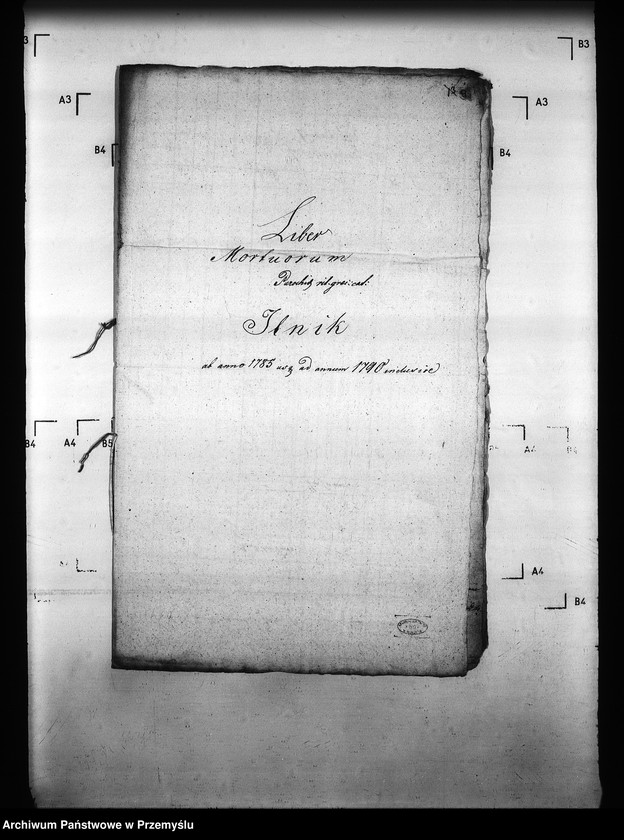 B3
A3
A3
B4
B4
Liber
Mortuorum
Parochię rit: græc: cat:
Ilnik
ab anno 1785 usq ad annum 1790 inclusive
B4
A4
B5
A4
A4
B4
Archiwum Państwowe w Przemyślu